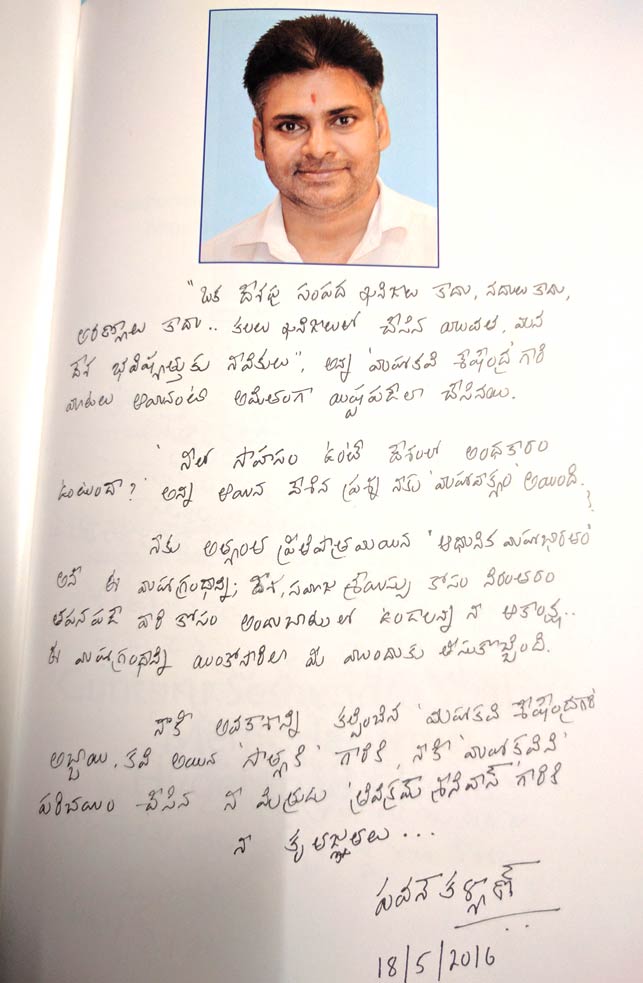 "ఒక దేశపు సంపద ఖనిజాలు కాదు, నదులు కాదు,
అరణ్యాలు కాదు.. కలలు ఖనిజాలతో చేసిన యువత, మన
దేశ భవిష్యత్తుకు నావికులు", అన్న 'మహాకవి శేషేంద్ర' గారి
మాటలు ఆయనంటే అమితంగా యిష్టపడేలా చేసినయి.
'నీలో సాహసం ఉంటే దేశంలో అంధకారం
ఉంటుందా?' అన్న ఆయన వేసిన ప్రశ్న నాకు 'మహావాక్యం' అయింది.
నాకు అత్యంత ప్రీతిపాత్రమయిన 'ఆధునిక మహాభారతం'
అనే ఈ మహాగ్రంథాన్ని; దేశ, సమాజ శ్రేయస్సు కోసం నిరంతరం
తపనపడే వారి కోసం అందుబాటులో ఉండాలన్న నా ఆకాంక్ష..
ఈ మహాగ్రంథాన్ని యింకోసారిలా మీ ముందుకు తీసుకొచ్చింది.
నాకీ అవకాశాన్ని కల్పించిన 'మహాకవి శేషేంద్ర'గారి
అబ్బాయి, కవి అయిన 'సాత్యకి' గారికి, నాకీ 'మహాకవిని'
పరిచయం చేసిన నా మిత్రుడు 'త్రివిక్రమ్ శ్రీనివాస్' గారికి
నా కృతజ్ఞతలు...
పవన్ కళ్యాణ్
18/5/2016